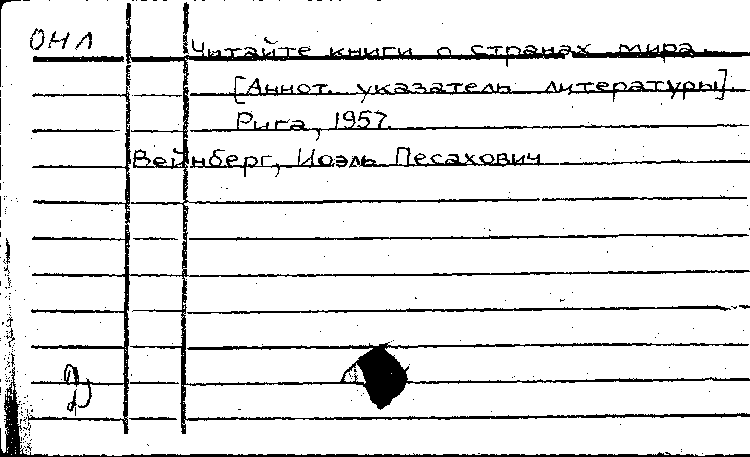 ОНЛ
Читайте книги о странах мира.
[Аннот. указатель литературы].
Рига, 1957.
Вейнберг, Иоэль Песахович